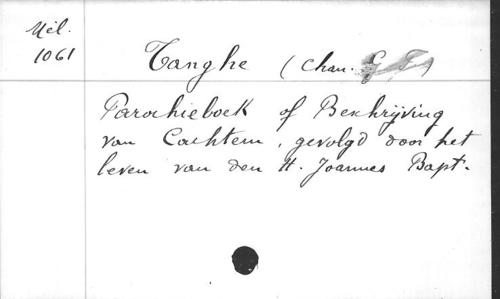 Mél.
1061
Tanghe (Chan.
Parochieboek of Beschrijving
van Cachtem, gevolgd door het
leven van den H. Joannes Bapt.